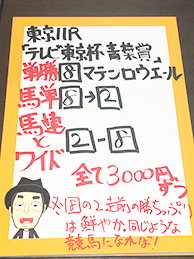 東京11R
「テレビ東京杯青葉賞」
単勝8マテンロウエール
馬単8→2
馬連
と
ワイド
2-8
全て3000円
ずつ
8の2走前の勝ちっぷり
は鮮やか。同じような
競馬になれば!